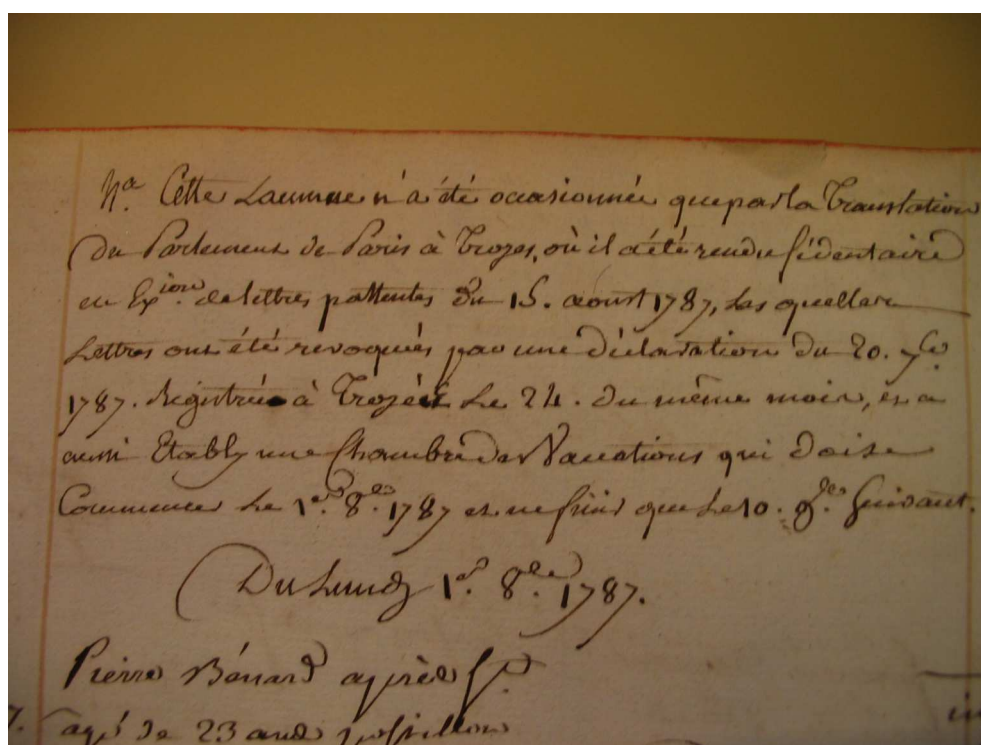 Na. Cette Lacune n'a été occasionnée que par la Translation
du Parlement de Paris à Troyes, où il a été rendu sédentaire
en Exion. de lettres pattentes du 15. aoust 1787, Les quelles
Lettres ont été revoquées par une déclaration du 20. 7bre
1787. Registrée à Troyes Le 24. du même mois, et a
aussi Etably une Chambre des Vacations qui doit se
Commencer Le 1er. 8bre. 1787 et ne finir que Le 10. 9bre. Suivant.
Du Lundy 1er. 8bre. 1787.
Pierre Bénard
agé de 23 ans postillon